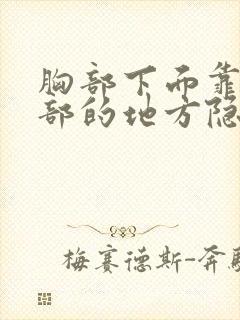 胸部下而靠
部的地方隐
梅赛德斯-奔